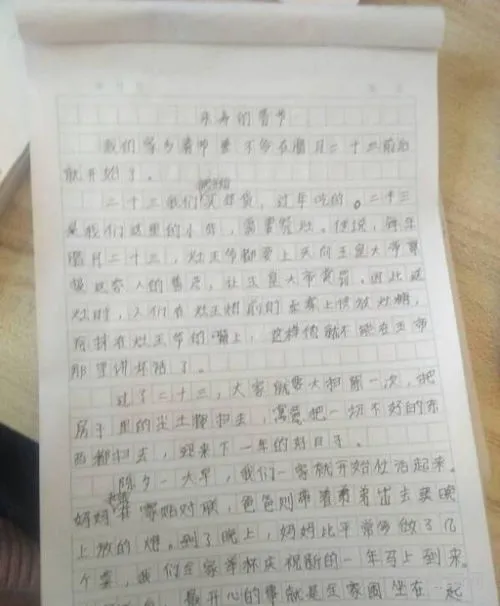 的春节
我们家乡春节要不多在腊月二十三前后
就开始了。
就开始
二十三我们买年货,过年吃的。二十三
是我们这里的小年,需要祭灶。传说,每年
腊月二十三,灶王爷都要上天向玉皇大帝
这家人的善恶,让玉皇大帝赏罚。因此
灶时,人们在灶王像前的桌案上供放灶糖,
在灶王爷的嘴上,这样他就不能在玉帝
那里讲坏话了。
过了二十三,大家就要大扫除一次,把
房子里的尘土都扫去,寓意把一切不好的东
西都扫去,迎来下一年的好日子。
除夕一大早,我们一家就开始忙活起来。
妈妈在家贴对联,爸爸则带着弟弟出去买晚
上放的炮。到了晚上,妈妈比平常多做了几
个菜,我们全家举杯庆祝新的一年马上到来。
最开心的事就是全家围坐在一起